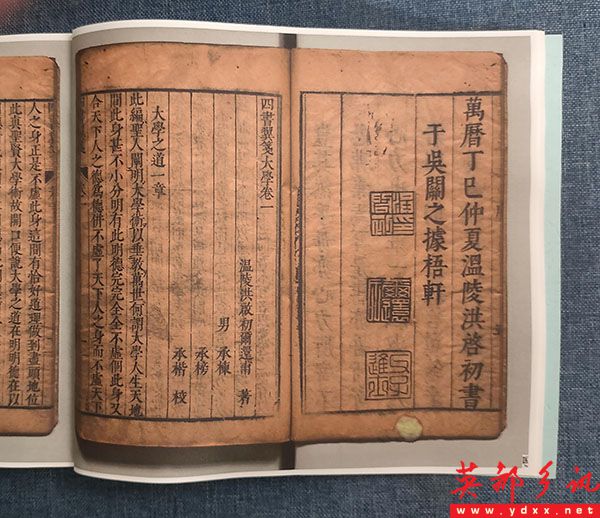 萬曆丁巳仲夏溫陵洪啓初書
于吳關之據梧軒
四書翼箋大學卷一
溫陵洪啟初爾還甫著
男承棟
承榜
承楷校
大學之道一章
此編聖人闡明大學術以垂敎萬世何謂大學人生天地
間此身甚不小分明有此明德完完全全不虛個此身又
合天下人之德爲德併不虛了天下人之身而不虛天下
人之身正是不虛此身這間有恰好道理做到盡頭地位
此真聖賢大學術故開口便說大學之道在明明德在以
英都乡讯
www.ydxx.net